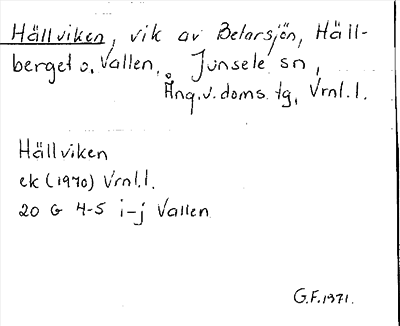 Hällviken, vik av Betarsjön, Häll-
berget o. Vallen, Junsele sn,
Ång.v.doms.tg, Vrnl.l.
Hällviken
ek (1970) Vrnl.l.
20 G 4-5 i-j Vallen
G.F.1971.